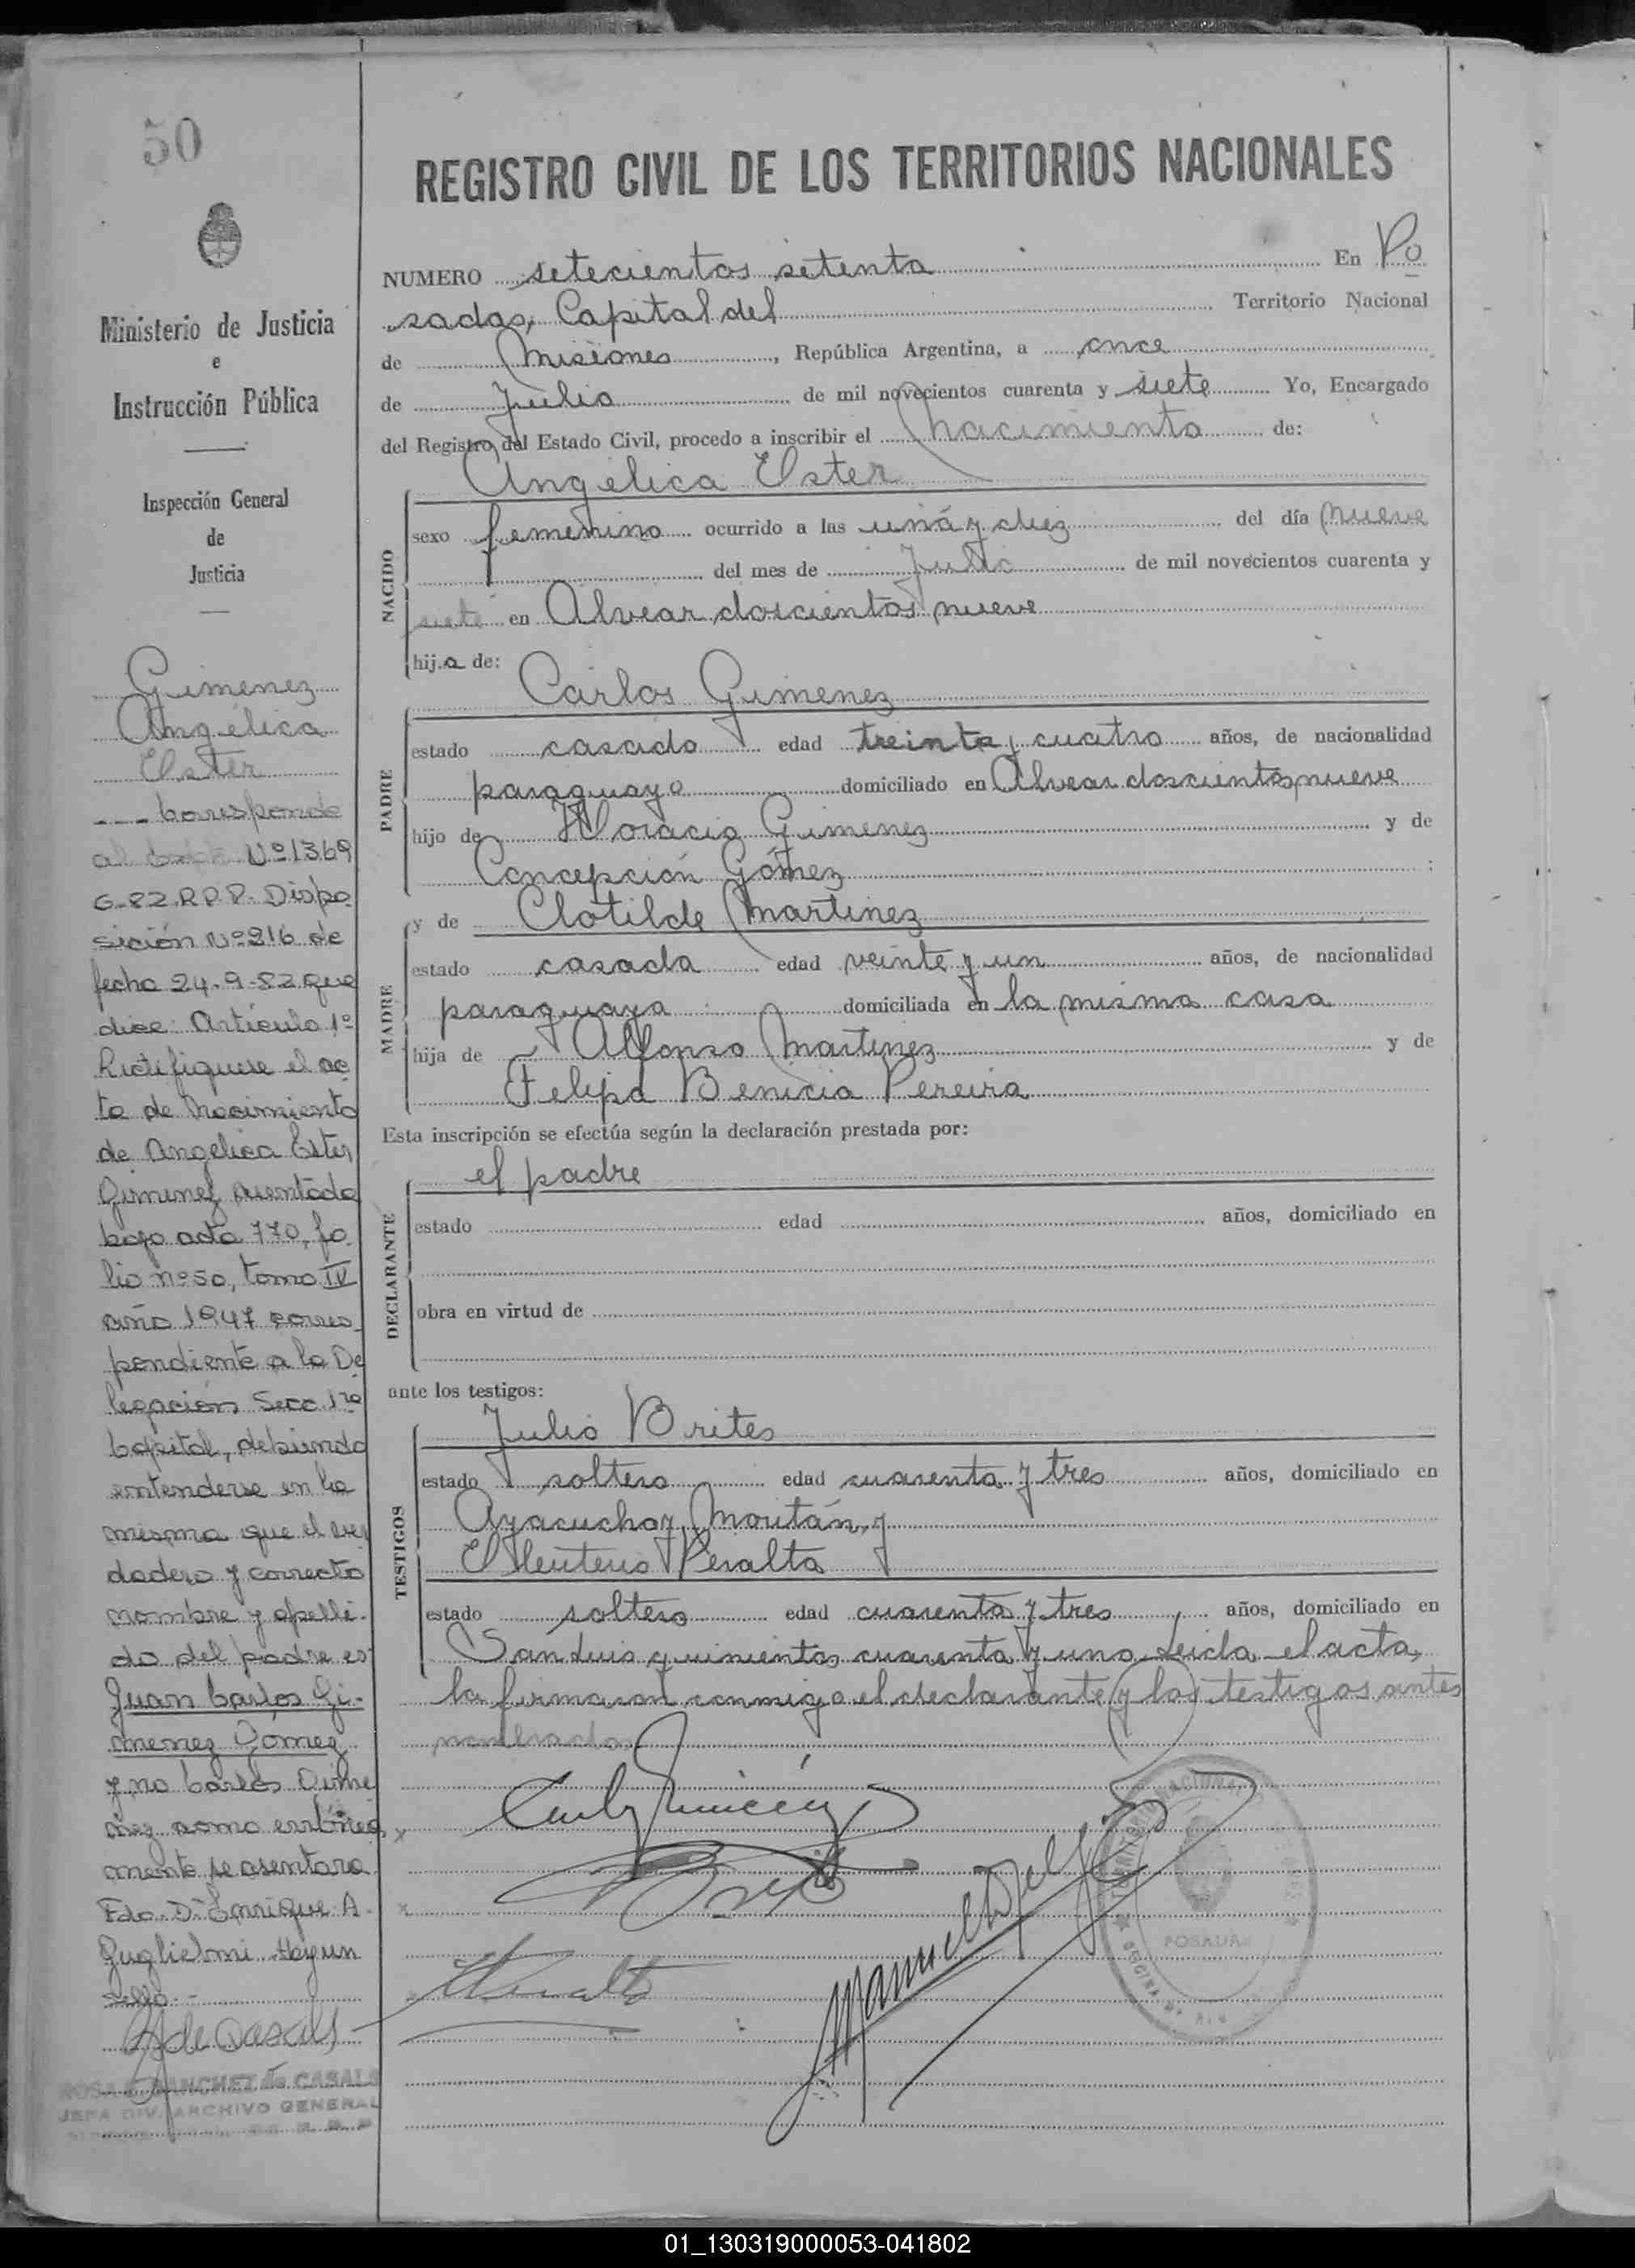 50
Ministerio de Justicia
e
Instrucción Pública
Inspección General
de
Justicia
Gimenez
Angélica
Ester
--- Corresponde
al Nº 1369
G-82.R.P.P. Dispo
sición Nº 216 de
fecha 24-9-82 que
dice: Artículo 1º
Rectifíquese el ac
ta de Nacimiento
de Angelica Ester
Gimenez asentada
bajo acta 770, fo
lio nº 50, tomo IV
año 1947 corres
pondiente a la De
legación Secc. 1ra
Capital, debiendo
entenderse en la
misma que el ver
dadero y correcto
nombre y apelli-
do del padre es
Juan Carlos Gi-
menez Gómez
y no Carlos Gime
nez como errónea
mente se asentara
Fdo. D. Enrique A.
Guglielmi. Hay un
sello.-
de Casals
ROSA SANCHEZ de CASALS
JEFA DIV. ARCHIVO GENERAL
REGISTRO CIVIL DE LOS TERRITORIOS NACIONALES
NUMERO setecientos setenta En Po
sadas, Capital del Territorio Nacional
de Misiones, República Argentina, a once
de Julio de mil novecientos cuarenta y siete Yo, Encargado
del Registro del Estado Civil, procedo a inscribir el nacimiento de:
Angélica Ester
NACIDO
sexo femenino ocurrido a las una y diez del día nueve
del mes de Julio de mil novecientos cuarenta y
siete en Alvear doscientos nueve
hija de:
Carlos Gimenez
PADRE
estado casado edad treinta y cuatro años, de nacionalidad
paraguayo domiciliado en Alvear doscientos nueve
hijo de Horacio Gimenez y de
Concepción Gómez :
y de Clotilde Martinez
MADRE
estado casada edad veinte y un años, de nacionalidad
paraguaya domiciliada en la misma casa
hija de Alfonso Martinez y de
Felipa Benicia Pereira
Esta inscripción se efectúa según la declaración prestada por:
el padre
DECLARANTE
estado edad años, domiciliado en
obra en virtud de
ante los testigos:
Julio Brites
TESTIGOS
estado soltero edad cuarenta y tres años, domiciliado en
Ayacucho y Moritán, y
Eleuterio Peralta
estado soltero edad cuarenta y tres años, domiciliado en
San Luis quinientos cuarenta y uno. Leida el acta,
la firmaron conmigo el declarante y los testigos antes
nombrados.
POSADAS
01_130319000053-041802